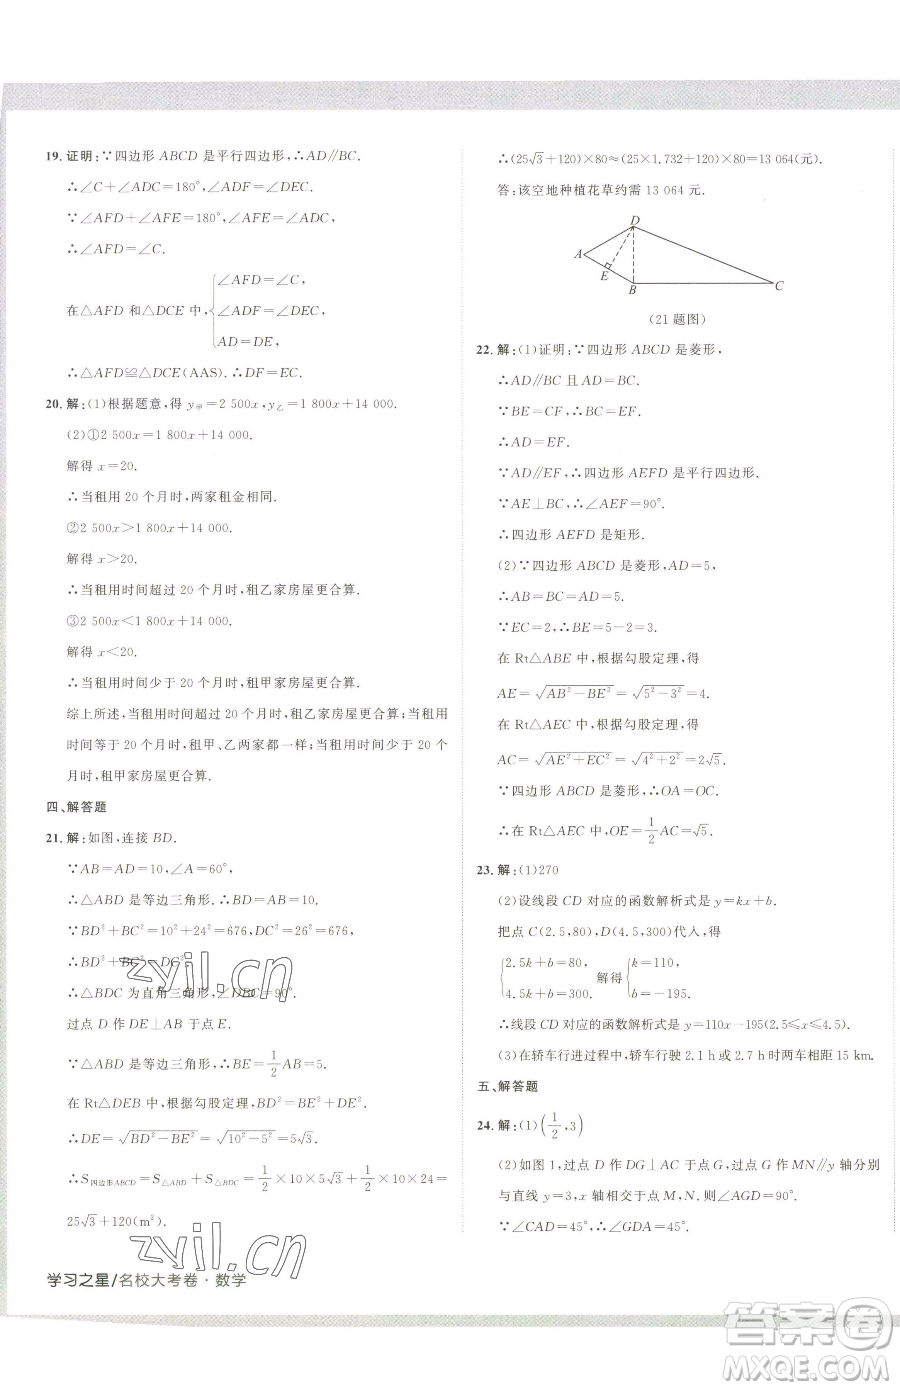 19. 证明:∵四边形 ABCD 是平行四边形,∴AD∥BC.
∴∠C+∠ADC=180°,∠ADF=∠DEC.
∵∠AFD+∠AFE=180°,∠AFE=∠ADC,
∴∠AFD=∠C.
在△AFD 和△DCE 中,{∠AFD=∠C,
∠ADF=∠DEC,
AD=DE,
∴△AFD≌△DCE(AAS).∴DF=EC.
20. 解:(1)根据题意,得 y甲=2 500x,y乙=1 800x+14 000.
(2)①2 500x=1 800x+14 000.
解得 x=20.
∴当租用 20 个月时,两家租金相同.
②2 500x>1 800x+14 000.
解得 x>20.
∴当租用时间超过 20 个月时,租乙家房屋更合算.
③2 500x<1 800x+14 000.
解得 x<20.
∴当租用时间少于 20 个月时,租甲家房屋更合算.
综上所述,当租用时间超过 20 个月时,租乙家房屋更合算;当租用
时间等于 20 个月时,租甲、乙两家都一样;当租用时间少于 20 个
月时,租甲家房屋更合算.
四、解答题
21. 解:如图,连接 BD.
∵AB=AD=10,∠A=60°,
∴△ABD 是等边三角形.∴BD=10.
∵BD²+BC²=10²+24²=676,DC²=26²=676,
∴BD²+BC²=DC².
∴△BDC 为直角三角形,∠DBC=90°.
过点 D 作 DE⊥AB 于点 E.
∵△ABD 是等边三角形,∴BE=1/2AB=5.
在 Rt△DEB 中,根据勾股定理,得
∴DE=√(BD²-BE²)=√(10²-5²)=5√3.
∴S四边形ABCD=S△ABD+S△BDC=1/2×10×5√3+1/2×10×24=
25√3+120(m²).
学习之星/名校大考卷·数学
∴(25√3+120)×80≈(25×1.732+120)×80=13 064(元).
答:该空地种植花草约需 13 064 元.
D
A
E
B
C
(21 题图)
22. 解:(1)证明:∵四边形 ABCD 是菱形,
∴AD∥BC 且 AD=BC.
∵BE=CF,∴BC=EF.
∴AD=EF.
∵AD∥EF,∴四边形 AEFD 是平行四边形.
∵AE⊥BC,∴∠AEF=90°.
∴四边形 AEFD 是矩形.
(2)∵四边形 ABCD 是菱形,AD=5,
∴AB=BC=AD=5.
∵EC=2,∴BE=5-2=3.
在 Rt△ABE 中,根据勾股定理,得
AE=√(AB²-BE²)=√(5²-3²)=4.
在 Rt△AEC 中,根据勾股定理,得
AC=√(AE²+EC²)=√(4²+2²)=2√5.
∵四边形 ABCD 是菱形,∴OA=OC.
∴在 Rt△AEC 中,OE=1/2AC=√5.
23. 解:(1)270
(2)设线段 CD 对应的函数解析式是 y=kx+b.
把点 C(2.5,80),D(4.5,300)代入,得
{2.5k+b=80, 解得{k=110,
4.5k+b=300. b=-195.
∴线段 CD 对应的函数解析式是 y=110x-195(2.5≤x≤4.5).
(3)在轿车行进过程中,轿车行驶 2.1 h 或 2.7 h 时两车相距 15 km.
五、解答题
24. 解:(1)(1/2,3)
(2)如图 1,过点 D 作 DG⊥AC 于点 G,过点 G 作 MN∥y 轴分别
与直线 y=3,x 轴相交于点 M,N.则∠AGD=90°.
∵∠CAD=45°,∴∠GDA=45°.
zyjl.cn
zyjl.cn
答案圈
MXQE.COM